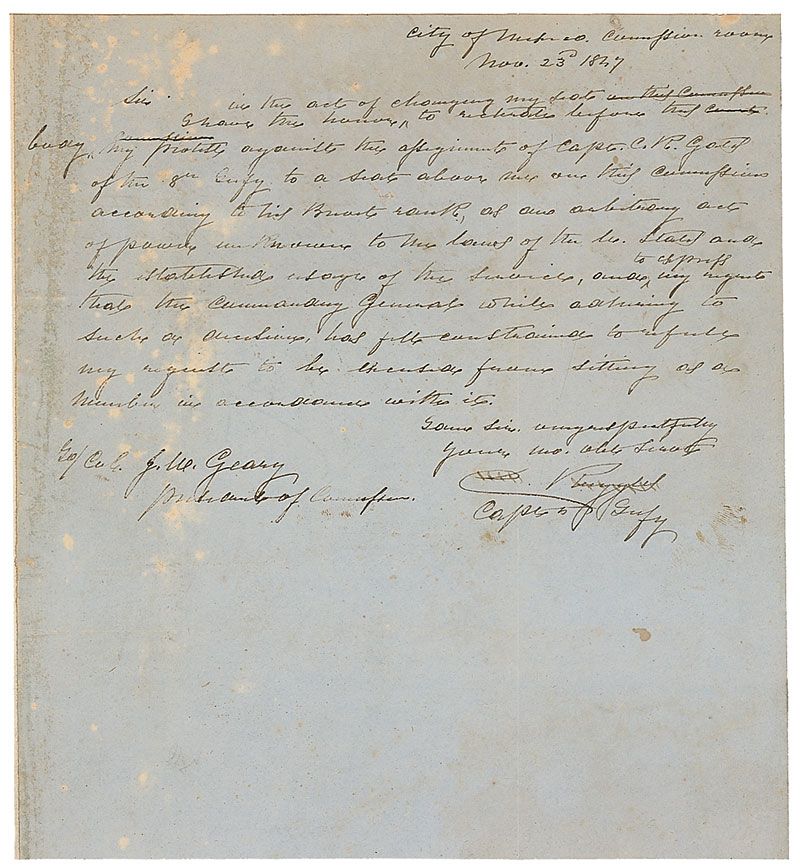 City of Mexico. Commission room
Nov. 23d 1847
Sir in the act of changing my seat on this Commission
I have the honor, to reiterate before this Court
body, Commission my protest against the assignment of Capt. C. R. Gates
of the 8th Infy to a seat above me on this Commission
according to his Brevet rank, as an arbitrary act
of power unknown to the laws of the U. States and
the established usage of the service, and to express my regrets
that the Commanding General while adhering to
such a decision, has felt constrained to refuse
my request to be excused from sitting as a
Member in accordance with it.
I am Sir. very respectfully
Your mo. obt Servt
To/ Col. J. W. Geary
President of Commission.
Ruggles
Capt 5 Infy